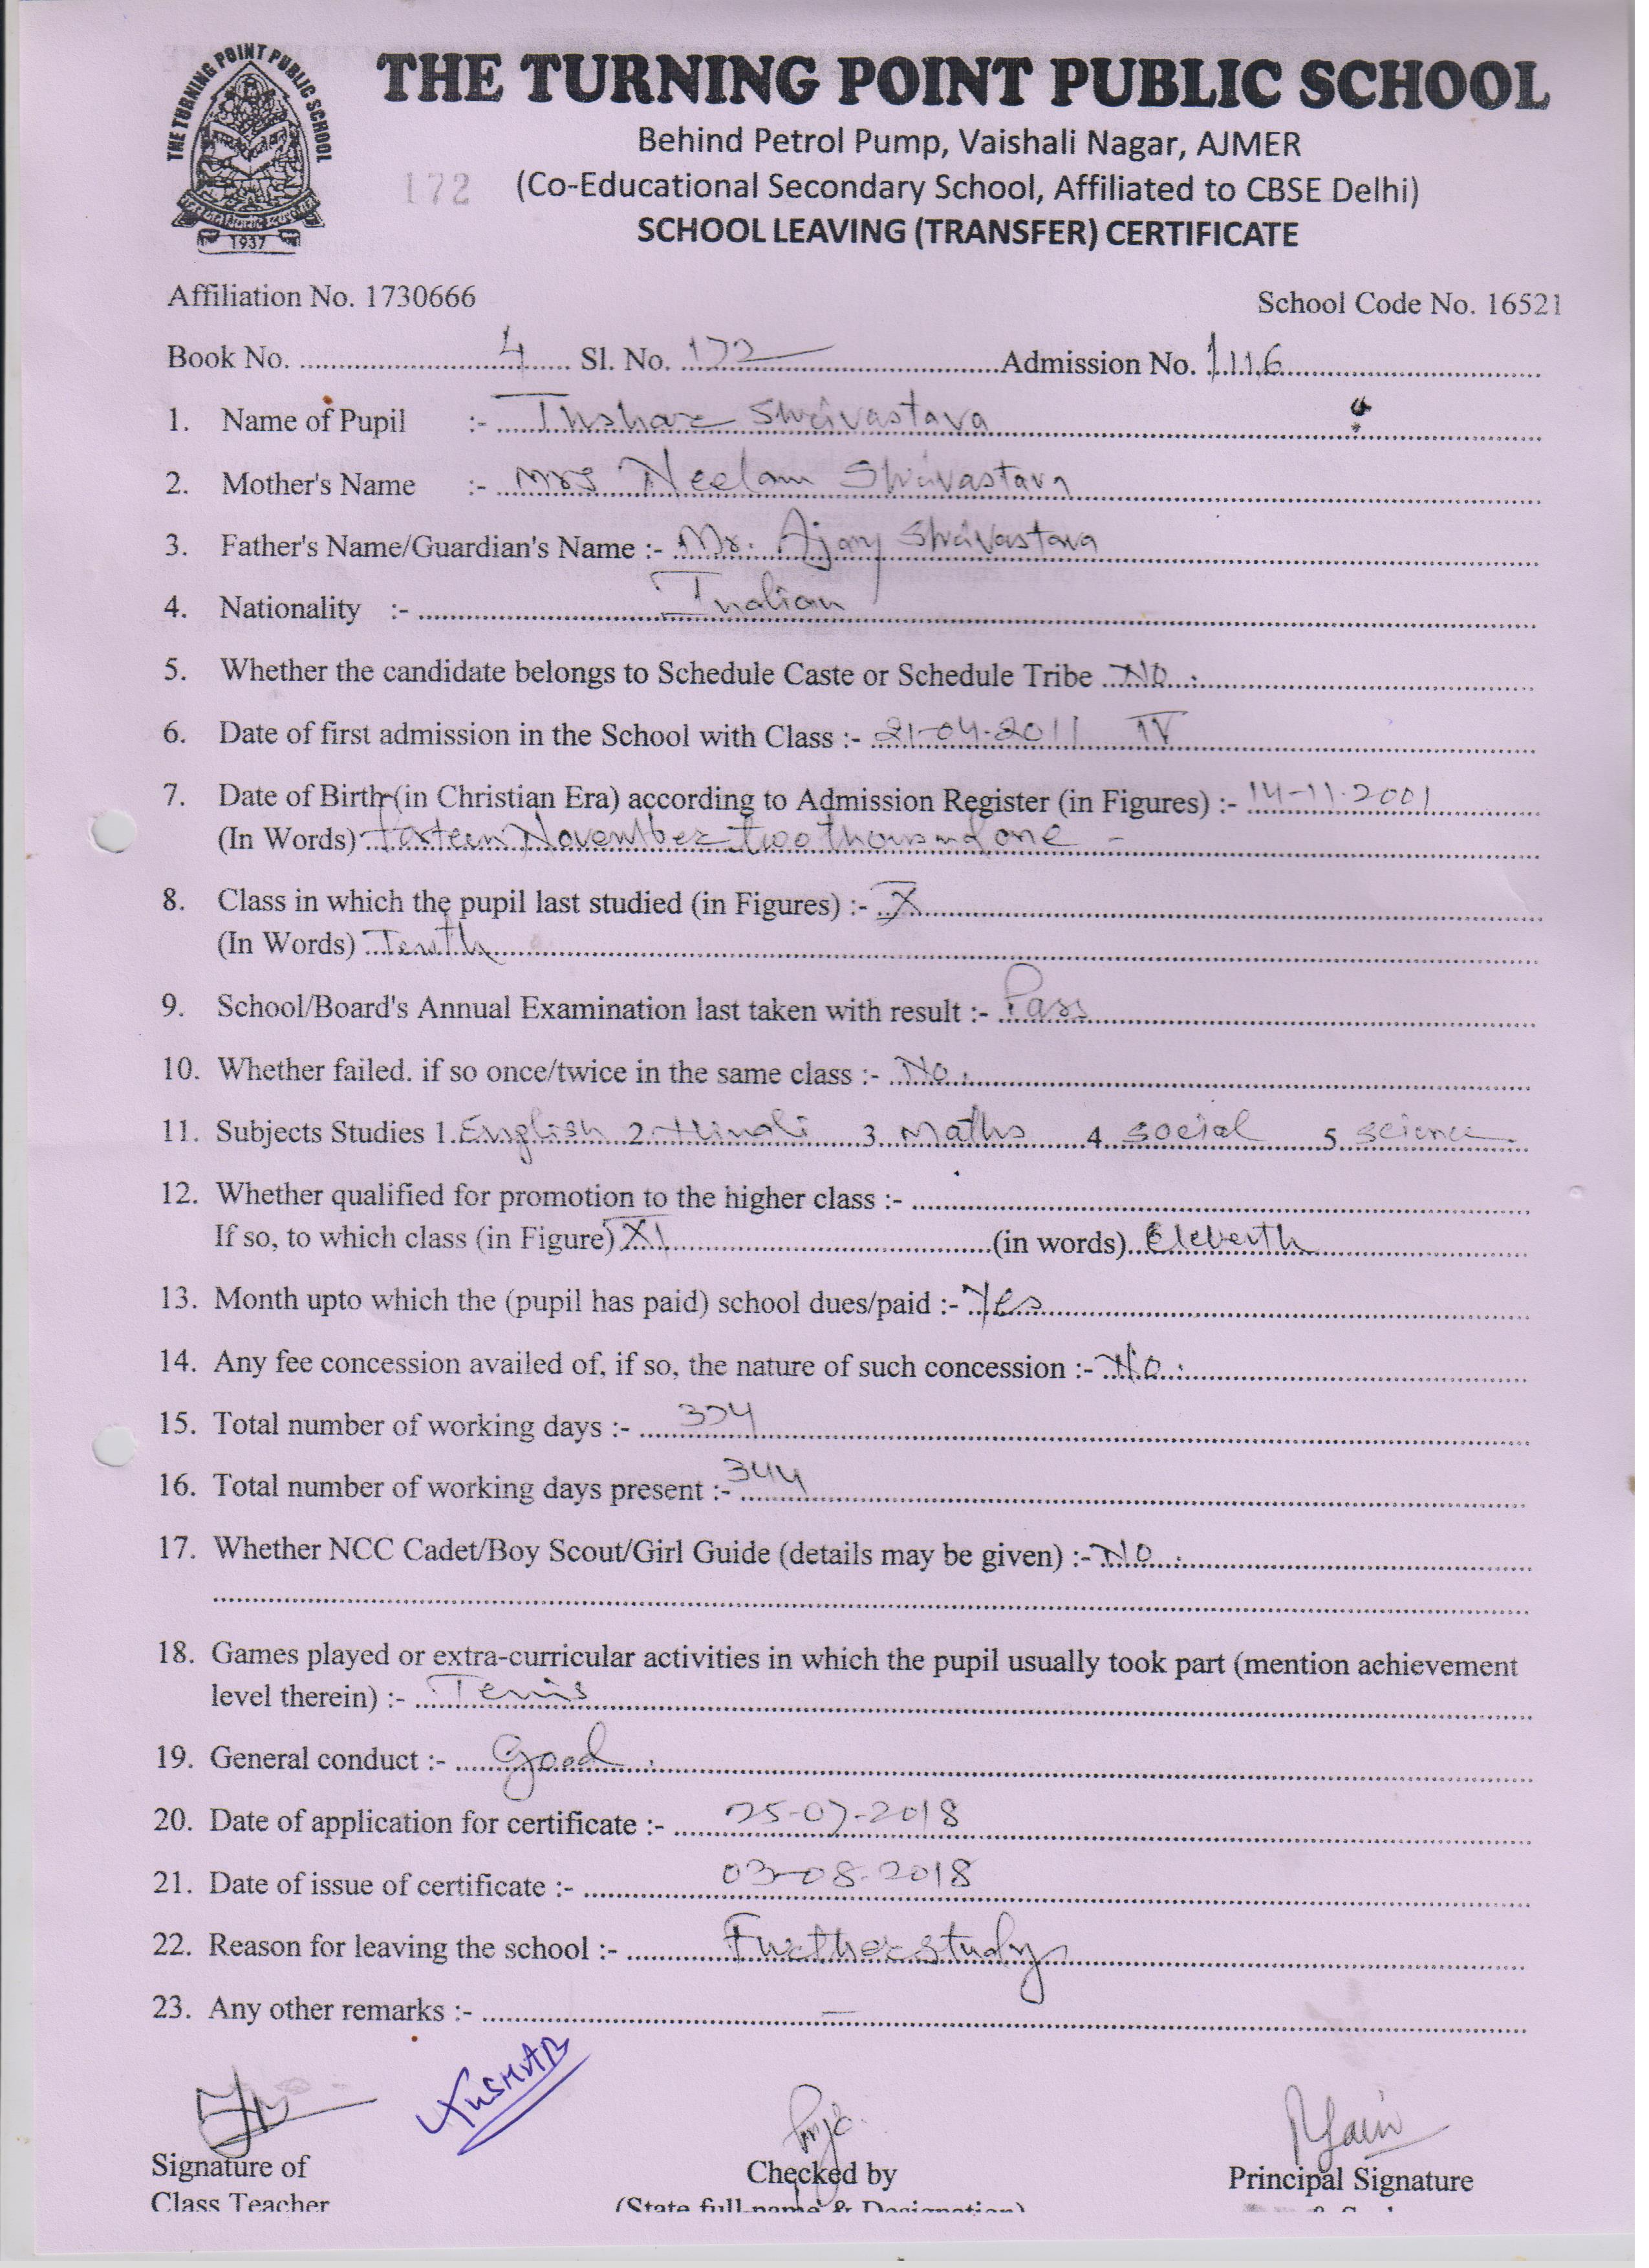 THE TURNING POINT PUBLIC SCHOOL
1937
THE TURNING POINT PUBLIC SCHOOL
Behind Petrol Pump, Vaishali Nagar, AJMER
172 (Co-Educational Secondary School, Affiliated to CBSE Delhi)
SCHOOL LEAVING (TRANSFER) CERTIFICATE
Affiliation No. 1730666 School Code No. 16521
Book No. 4 Sl. No. 172 Admission No. 1116
1. Name of Pupil :- Tushar Shrivastava
2. Mother's Name :- Mrs Neelam Shrivastava
3. Father's Name/Guardian's Name :- Mr. Ajay Shrivastava
4. Nationality :- Indian
5. Whether the candidate belongs to Schedule Caste or Schedule Tribe No.
6. Date of first admission in the School with Class :- 21-04-2011 IV
7. Date of Birth (in Christian Era) according to Admission Register (in Figures) :- 14-11-2001
(In Words) forteen November two thousand one -
8. Class in which the pupil last studied (in Figures) :- X
(In Words) Tenth
9. School/Board's Annual Examination last taken with result :- Pass
10. Whether failed. if so once/twice in the same class :- No.
11. Subjects Studies 1. English 2. Hindi 3. Maths 4. Social 5. Science.
12. Whether qualified for promotion to the higher class :-
If so, to which class (in Figure) XI (in words) Eleventh
13. Month upto which the (pupil has paid) school dues/paid :- Yes
14. Any fee concession availed of, if so, the nature of such concession :- No.
15. Total number of working days :- 374
16. Total number of working days present :- 344
17. Whether NCC Cadet/Boy Scout/Girl Guide (details may be given) :- No.
18. Games played or extra-curricular activities in which the pupil usually took part (mention achievement
level therein) :- Tenis
19. General conduct :- Good.
20. Date of application for certificate :- 25-07-2018
21. Date of issue of certificate :- 03-08-2018
22. Reason for leaving the school :- Further study
23. Any other remarks :- —
TUSHAR
Signature of Checked by Principal Signature
Class Teacher (State full name & Designation)